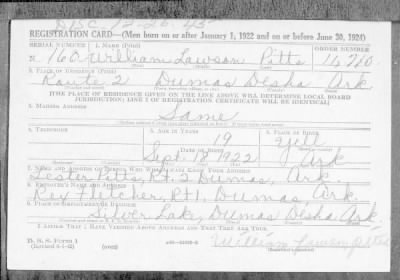 DISC. 12-26-45
REGISTRATION CARD—(Men born on or after January 1, 1922 and on or before June 30, 1924)
SERIAL NUMBER 1. NAME (Print) ORDER NUMBER
N 160 William Lawson Pitts
2. PLACE OF RESIDENCE (Print)
Route 2 Dumas Desha Ark.
[THE PLACE OF RESIDENCE GIVEN ON THE LINE ABOVE WILL DETERMINE LOCAL BOARD
JURISDICTION; LINE 2 OF REGISTRATION CERTIFICATE WILL BE IDENTICAL]
3. MAILING ADDRESS
Same
4. TELEPHONE 5. AGE IN YEARS 6. PLACE OF BIRTH
19 Yell
DATE OF BIRTH
Sept. 18 1922 Ark
7. NAME AND ADDRESS OF PERSON WHO WILL ALWAYS KNOW YOUR ADDRESS
Lester Pitts, Rt. 2, Dumas, Ark.
8. EMPLOYER'S NAME AND ADDRESS
Rex Fletcher, Rt 1, Dumas, Ark.
9. PLACE OF EMPLOYMENT OR BUSINESS
Silver Lake, Dumas Desha Ark.
I AFFIRM THAT I HAVE VERIFIED ABOVE ANSWERS AND THAT THEY ARE TRUE.
D. S. S. Form 1 (over)
William Lawson Pitts